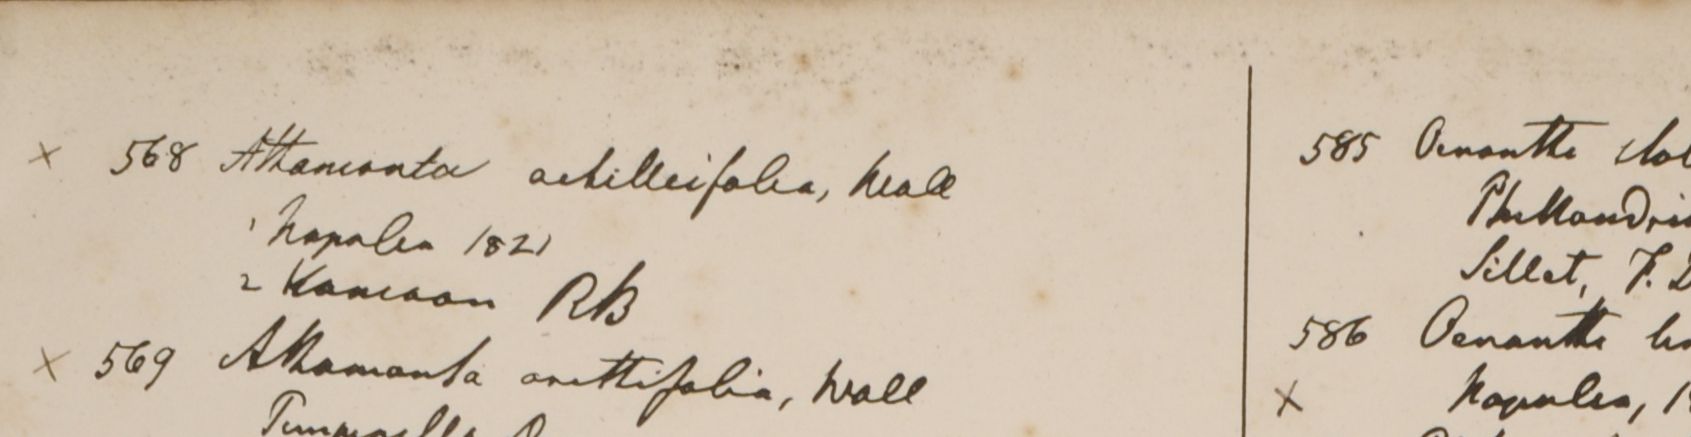 × 568 Athamanta achilleifolia, Wall
1 Napalia 1821
2 Kamaon RB
× 569 Athamanta arettifolia, Wall
585 Oenanthe
Sillet, F. D
586 Oenanthe
× Napalia, 1